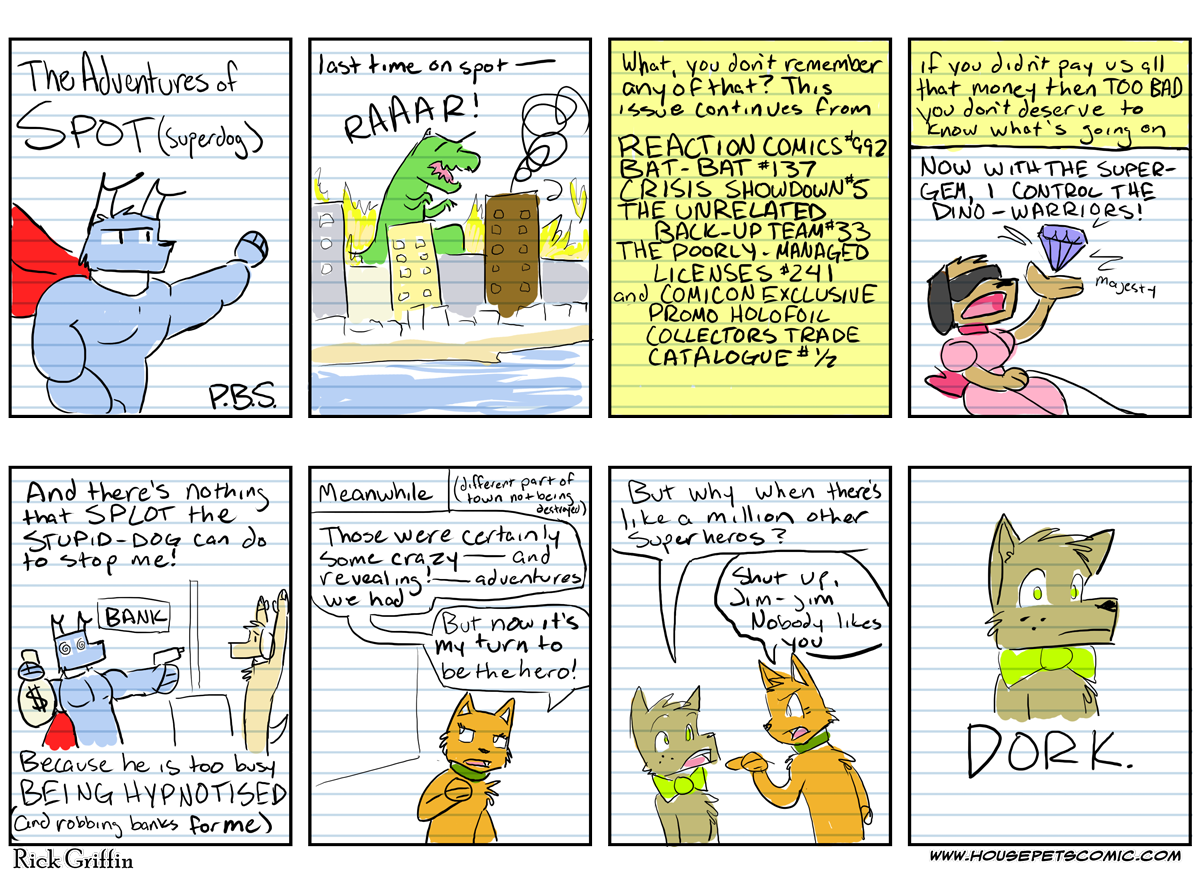 The Adventures of
SPOT (superdog)
P.B.S.
last time on spot —
RAAAR!
What, you don't remember
any of that? This
issue continues from
REACTION COMICS #992
BAT-BAT #137
CRISIS SHOWDOWN #5
THE UNRELATED
BACK-UP TEAM #33
THE POORLY-MANAGED
LICENSES #241
and COMICON EXCLUSIVE
PROMO HOLOFOIL
COLLECTORS TRADE
CATALOGUE #1/2
if you didn't pay us all
that money then TOO BAD
you don't deserve to
know what's going on
NOW WITH THE SUPER-
GEM, I CONTROL THE
DINO-WARRIORS!
majesty
And there's nothing
that SPLOT the
STUPID-DOG can do
to stop me!
BANK
$
Because he is too busy
BEING HYPNOTISED
(and robbing banks for me)
Meanwhile
(different part of
town not being
destroyed)
Those were certainly
some crazy — and
revealing! — adventures
we had
But now it's
my turn to
be the hero!
But why when there's
like a million other
superheros?
Shut up,
Jim-Jim
Nobody likes
you
DORK.
Rick Griffin
WWW.HOUSEPETSCOMIC.COM